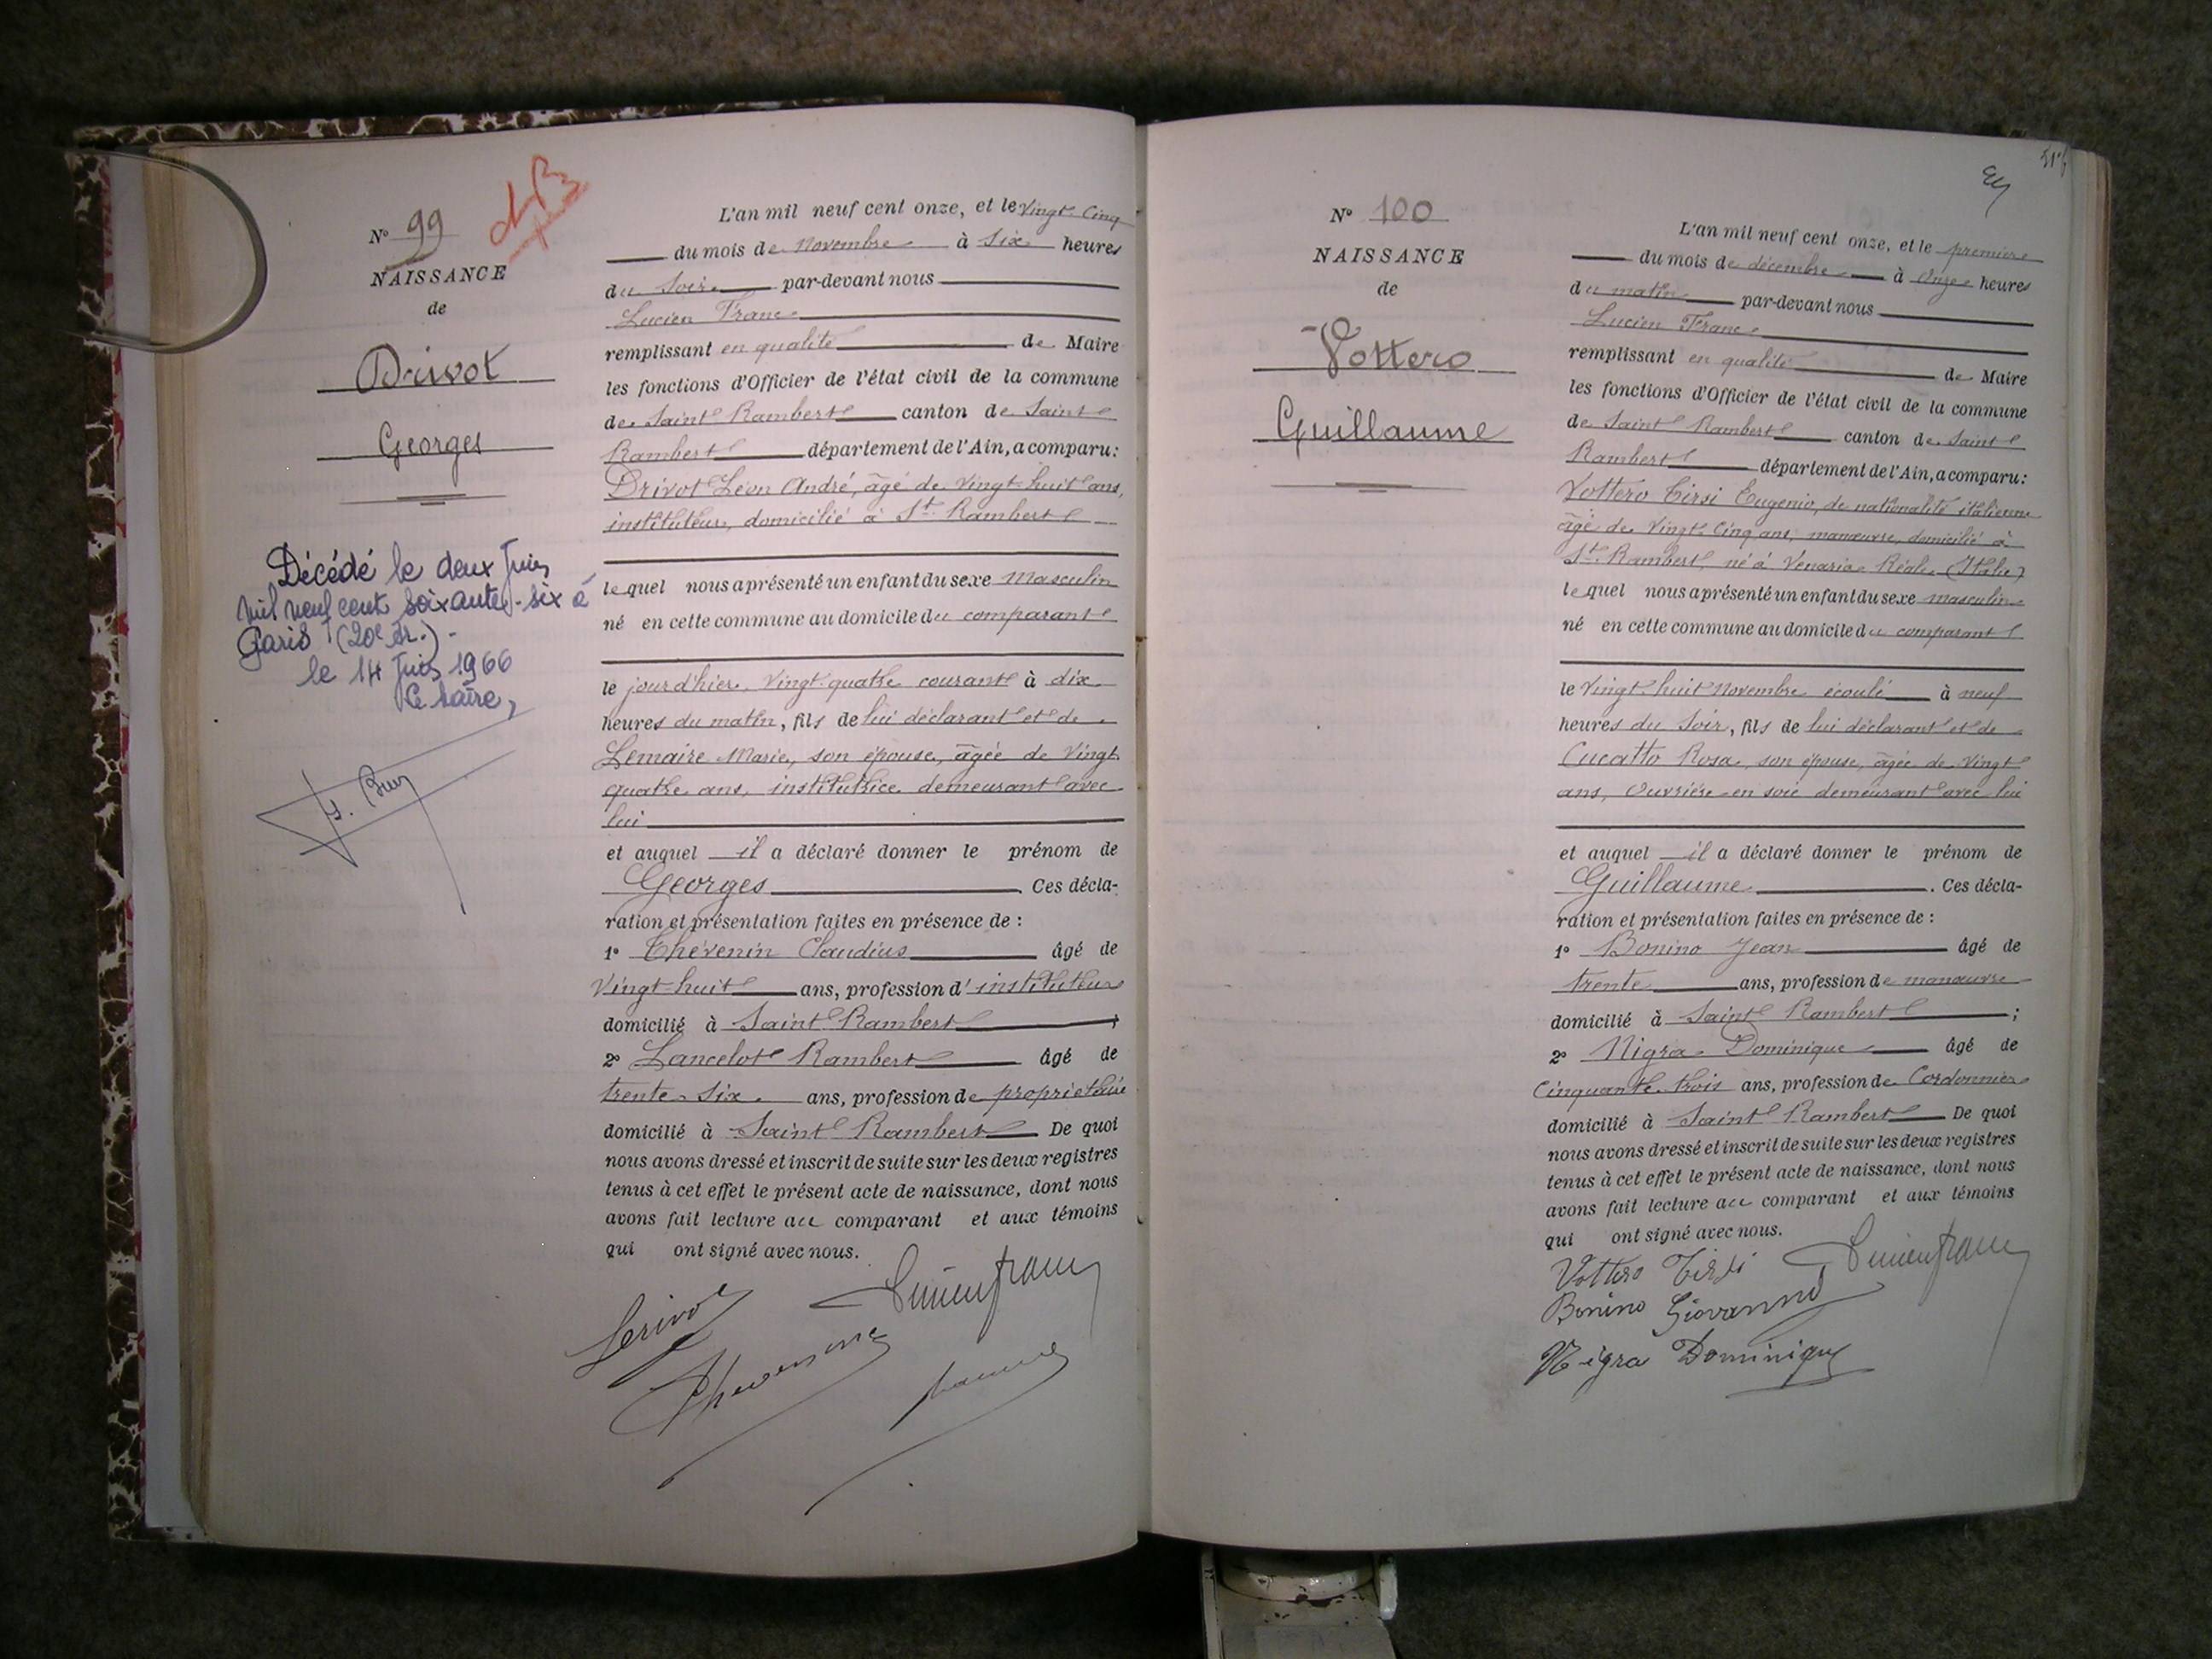 N° 99
NAISSANCE
de
Drivot
Georges
Décédé le deux Juin
mil neuf cent soixante-six à
Paris (20e Ar.) -
le 14 Juin 1966
Le Maire,
L'an mil neuf cent onze, et le Vingt-Cinq
du mois de Novembre à Six heures
du Soir par-devant nous
Lucien Franc
remplissant en qualité de Maire
les fonctions d'Officier de l'état civil de la commune
de Saint Rambert canton de Saint
Rambert département de l'Ain, a comparu:
Drivot Léon André, âgé de Vingt-huit ans,
instituteur, domicilié à St Rambert
lequel nous a présenté un enfant du sexe Masculin
né en cette commune au domicile du comparant
le jour d'hier, Vingt-quatre courant à dix
heures du matin, fils de lui déclarant et de
Lemaire Marie, son épouse, âgée de Vingt
quatre ans, institutrice demeurant avec
lui
et auquel il a déclaré donner le prénom de
Georges. Ces décla-
ration et présentation faites en présence de :
1° Thévenin Claudius âgé de
Vingt-huit ans, profession d'instituteur
domicilié à Saint Rambert ;
2° Lancelot Rambert âgé de
trente-Six ans, profession de propriétaire
domicilié à Saint Rambert De quoi
nous avons dressé et inscrit de suite sur les deux registres
tenus à cet effet le présent acte de naissance, dont nous
avons fait lecture au comparant et aux témoins
qui ont signé avec nous.
Lucien franc
N° 100
NAISSANCE
de
Vottero
Guillaume
L'an mil neuf cent onze, et le premier
du mois de décembre à Onze heures
du matin par-devant nous
Lucien Franc
remplissant en qualité de Maire
les fonctions d'Officier de l'état civil de la commune
de Saint Rambert canton de Saint
Rambert département de l'Ain, a comparu:
Vottero Tirsi Eugenio, de nationalité italienne
âgé de Vingt-Cinq ans, manœuvre, domicilié à
St Rambert, né à Venaria Réale (Italie)
lequel nous a présenté un enfant du sexe masculin
né en cette commune au domicile du comparant
le Vingt-huit Novembre écoulé à neuf
heures du Soir, fils de lui déclarant et de
Cucatto Rosa, son épouse, âgée de Vingt
ans, Ouvrière en soie demeurant avec lui
et auquel il a déclaré donner le prénom de
Guillaume. Ces décla-
ration et présentation faites en présence de :
1° Bonino Jean âgé de
trente ans, profession de manœuvre
domicilié à Saint Rambert ;
2° Nigra Dominique âgé de
Cinquante-trois ans, profession de Cordonnier
domicilié à Saint Rambert De quoi
nous avons dressé et inscrit de suite sur les deux registres
tenus à cet effet le présent acte de naissance, dont nous
avons fait lecture au comparant et aux témoins
qui ont signé avec nous.
Vottero Tirsi Lucien franc
Bonino Giovanni
Nigra Dominique